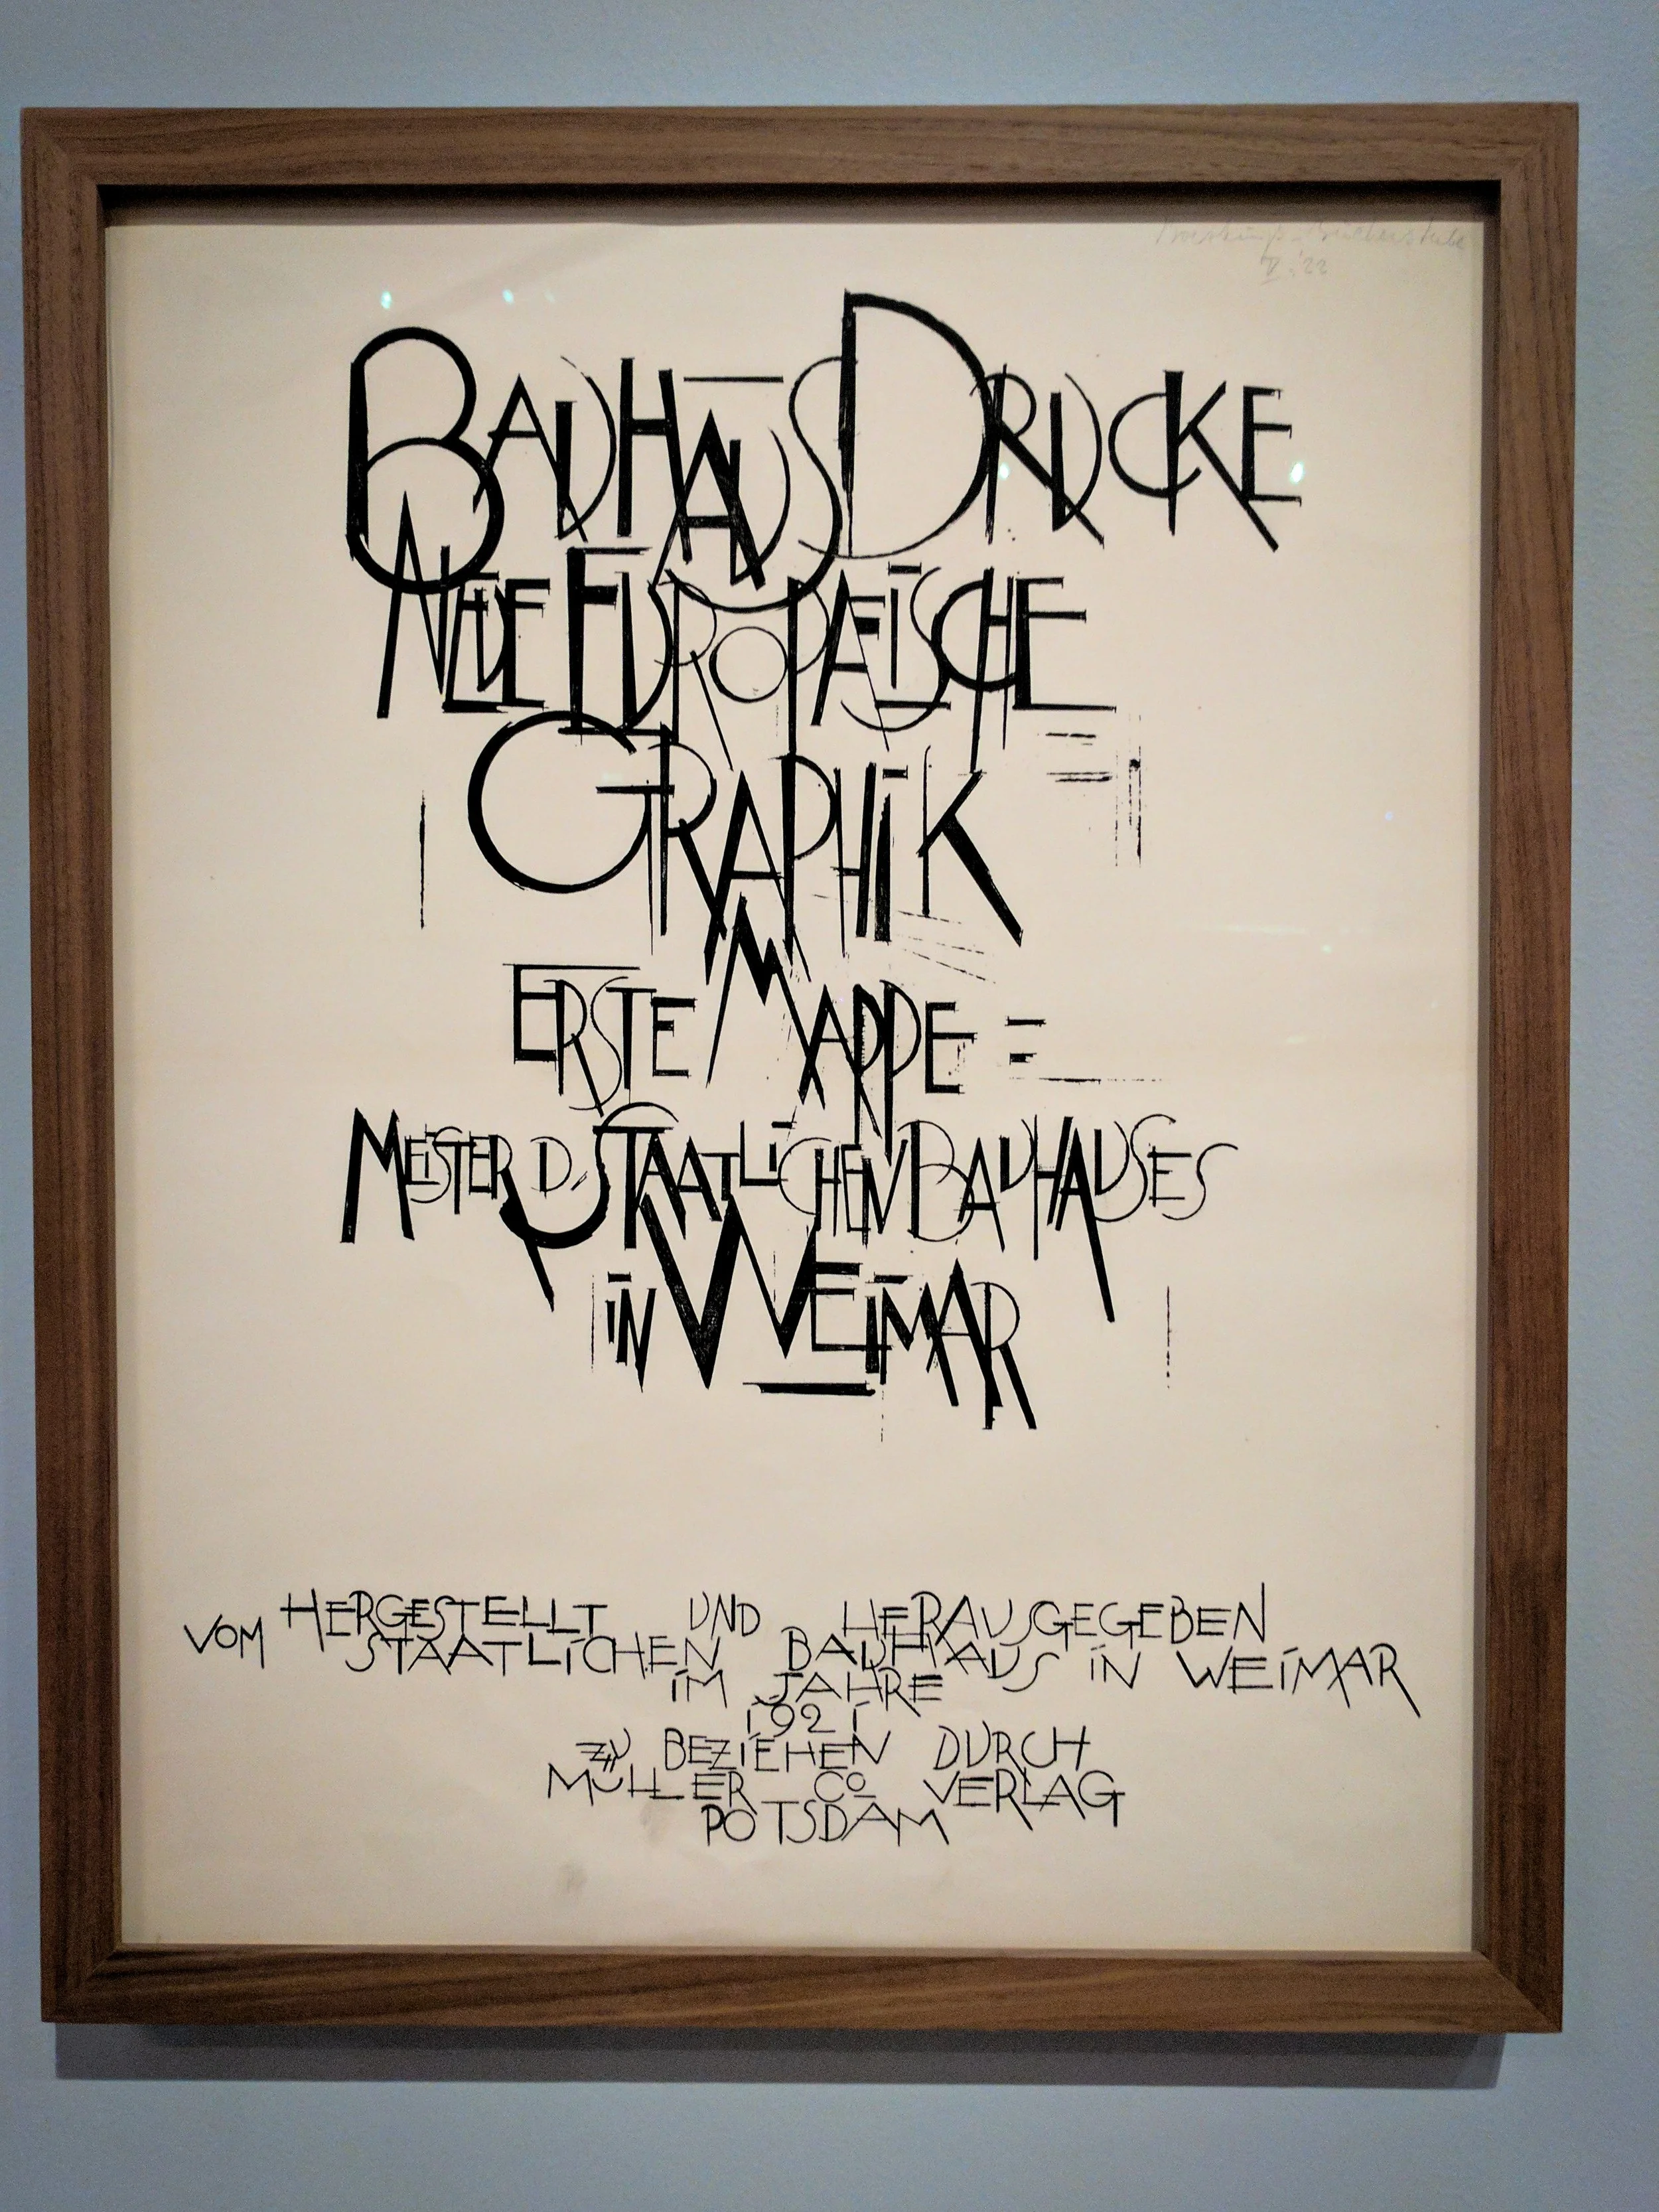 V. '22
BAUHAUS DRUCKE
NEUE EUROPAEISCHE
GRAPHIK
ERSTE MAPPE =
MEISTER D. STAATLICHEN BAUHAUSES
IN WEIMAR
HERGESTELLT UND HERAUSGEGEBEN
VOM STAATLICHEN BAUHAUS IN WEIMAR
IM JAHRE
1921
ZU BEZIEHEN DURCH
MÜLLER Co VERLAG
POTSDAM